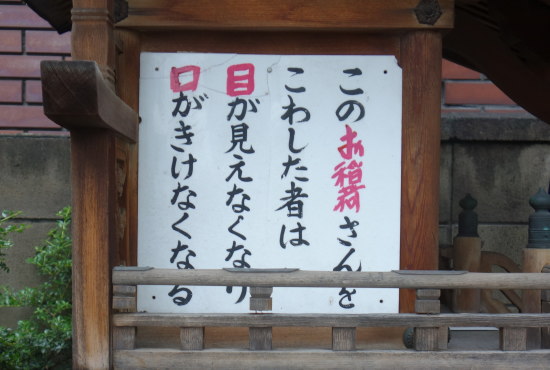 このお稲荷さんを
こわした者は
目が見えなくなり
口がきけなくなる